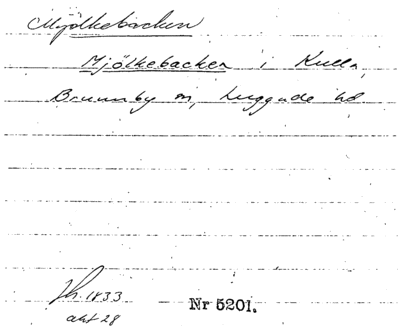 Mjölkebacken
Mjölkebacken i Kulla,
Brunnby sn, Luggude hd
Jh. 1833
akt 28
Nr 5201.